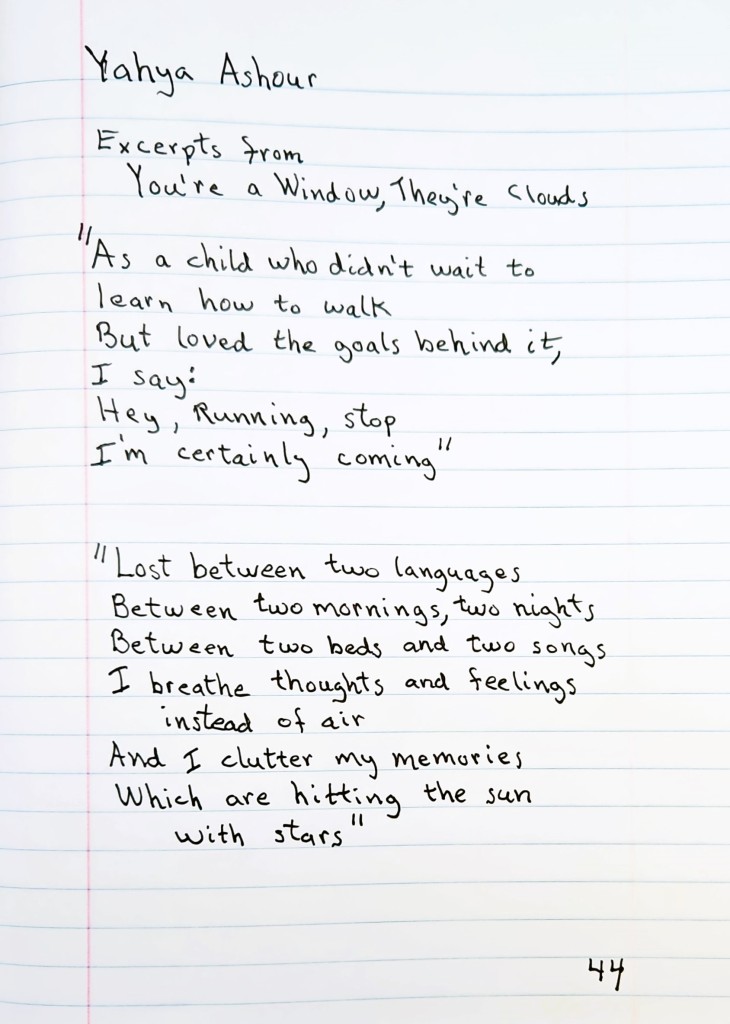 Yahya Ashour
Excerpts from
You're a Window, They're Clouds
"As a child who didn't wait to
learn how to walk
But loved the goals behind it,
I say:
Hey, Running, stop
I'm certainly coming"
"Lost between two languages
Between two mornings, two nights
Between two beds and two songs
I breathe thoughts and feelings
instead of air
And I clutter my memories
Which are hitting the sun
with stars"
44